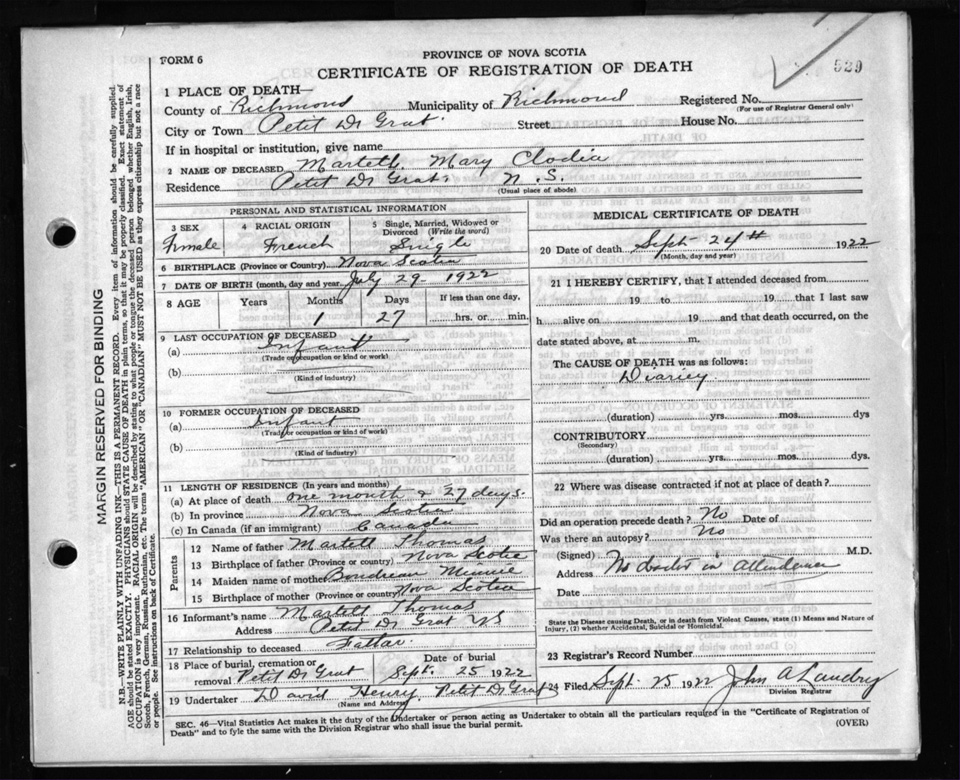 PROVINCE OF NOVA SCOTIA
FORM 6
CERTIFICATE OF REGISTRATION OF DEATH
529
1 PLACE OF DEATH—
County of Richmond Municipality of Richmond Registered No.
(For use of Registrar General only)
City or Town Petit De Grat. Street House No.
If in hospital or institution, give name
2 NAME OF DECEASED Martell Mary Clodia
Residence Petit De Grat N.S.
(Usual place of abode)
PERSONAL AND STATISTICAL INFORMATION
3 SEX 4 RACIAL ORIGIN 5 Single, Married, Widowed or Divorced (Write the word)
Female French Single
6 BIRTHPLACE (Province or Country) Nova Scotia
7 DATE OF BIRTH (month, day and year) July 29 1922
8 AGE Years Months Days If less than one day,
1 27 hrs. or min.
9 LAST OCCUPATION OF DECEASED
(a) Infant
(Trade occupation or kind or work)
(b)
(Kind of industry)
10 FORMER OCCUPATION OF DECEASED
(a) Infant
(Trade or occupation or kind of work)
(b)
(Kind of industry)
11 LENGTH OF RESIDENCE (In years and months)
(a) At place of death one month & 27 days.
(b) In province Nova Scotia
(c) In Canada (if an immigrant) Canada
Parents
12 Name of father Martell Thomas
13 Birthplace of father (Province or country) Nova Scotia
14 Maiden name of mother Boudreau Minnie
15 Birthplace of mother (Province or country) Nova Scotia
16 Informant's name Martell Thomas
Address Petit De Grat NS
17 Relationship to deceased Father
18 Place of burial, cremation or removal Petit De Grat Date of burial Sept. 25 1922
19 Undertaker David Henry Petit De Grat
(Name and Address)
MEDICAL CERTIFICATE OF DEATH
20 Date of death Sept 24th 1922
(Month, day and year)
21 I HEREBY CERTIFY, that I attended deceased from
19 to 19 that I last saw
h alive on 19 and that death occurred, on the
date stated above, at m.
The CAUSE OF DEATH was as follows:
(duration) yrs. mos. dys
CONTRIBUTORY
(Secondary)
(duration) yrs. mos. dys.
22 Where was disease contracted if not at place of death?
Did an operation precede death? No Date of
Was there an autopsy? No
(Signed) M.D.
Address No doctor in attendance
Date
State the Disease causing Death, or in death from Violent Causes, state (1) Means and Nature of Injury, (2) whether Accidental, Suicidal or Homicidal.
23 Registrar's Record Number
24 Filed Sept. 25 1922 John A Landry
Division Registrar
SEC. 46—Vital Statistics Act makes it the duty of the Undertaker or person acting as Undertaker to obtain all the particulars required in the "Certificate of Registration of
Death" and to fyle the same with the Division Registrar who shall issue the burial permit. (OVER)
MARGIN RESERVED FOR BINDING
N.B.—WRITE PLAINLY WITH UNFADING INK—THIS IS A PERMANENT RECORD. Every item of information should be carefully supplied.
AGE should be stated EXACTLY. PHYSICIANS should STATE CAUSE OF DEATH in plain terms, so that it may be properly classified. Exact statement of
OCCUPATION is very important. RACIAL ORIGIN will be described by stating to what people or tongue the deceased person belonged whether English, Irish,
Scotch, French, German, Russian, Ruthenian, etc. The terms "AMERICAN" OR "CANADIAN" MUST NOT BE USED as they express citizenship but not a race
or people. See instructions on back of Certificate.